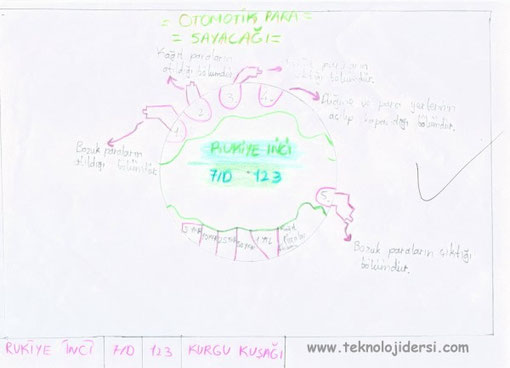 = OTOMOTİK PARA =
= SAYACAĞI =
Kağıt paraların
atıldığı bölümdür.
paraların
çıktığı bölümdür.
Düğme ve para yerlerinin
açılıp kapandığı bölümdür.
Bozuk paraların
atıldığı bölümdür.
1.
2.
3.
4.
RUKİYE İNCİ
7/D 123
5.
1 TL
Bozuk paraların çıktığı
bölümdür.
RUKİYE İNCİ 7/D 123 KURGU KUŞAĞI
www.teknolojidersi.com